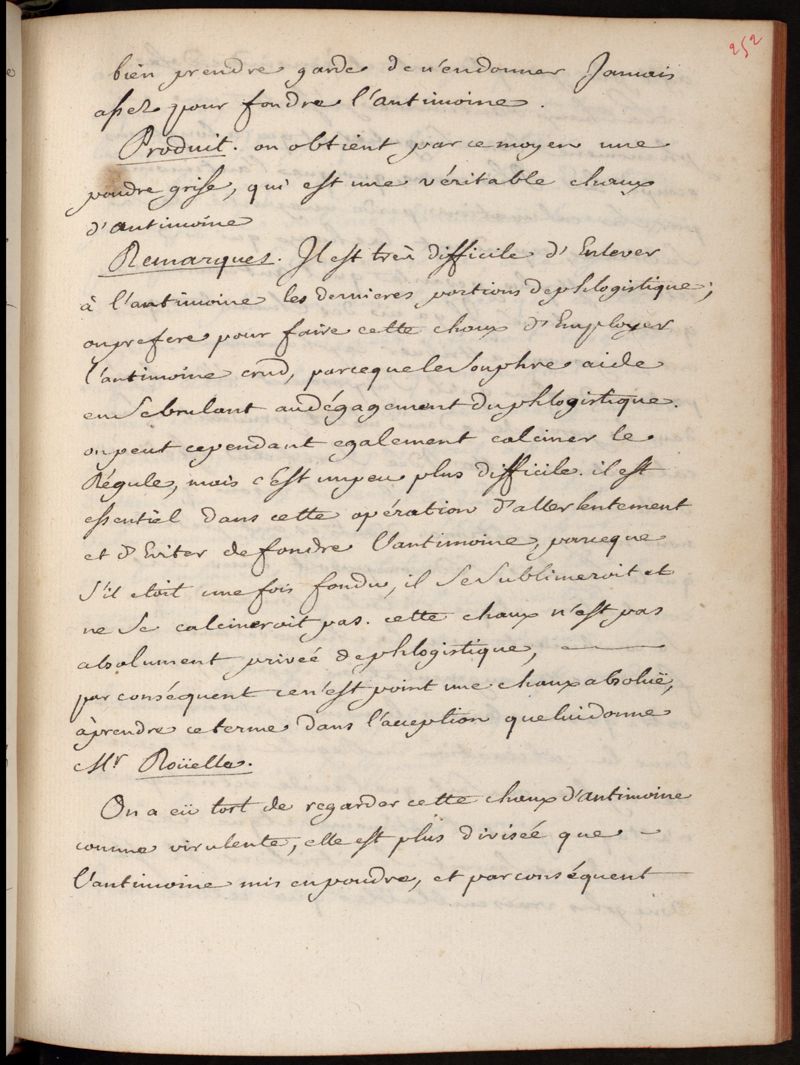 252
bien prendre garde de n'en donner Jamais
assez pour fondre l'antimoine.
Produit. on obtient par ce moyen une
poudre grise, qui est une véritable chaux
d'antimoine
Remarques. Il est très difficile d'Enlever
à l'antimoine les dernieres portions de phlogistique;
on prefere pour faire cette chaux d'Employer
l'antimoine crud, parceque le Souphre aide
en Se brulant au dégagement du phlogistique.
on peut cependant egalement calciner le
Régule, mais c'est un peu plus difficile. il est
essentiel dans cette opération d'aller lentement
et d'Eviter de fondre l'antimoine, parceque
S'il etoit une fois fondu, il Se Sublimeroit et
ne Se calcineroit pas. cette chaux n'est pas
absolument privée de phlogistique,
par conséquent ce n'est point une chaux absoluë,
à prendre ce terme dans l'acception que lui donne
Mr. Roüelle.
On a eü tort de regarder cette chaux d'antimoine
comme virulente, elle est plus divisée que
l'antimoine mis en poudre, et par conséquent